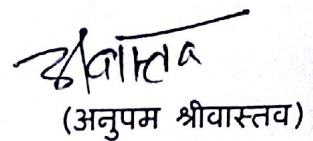 श्रीवास्तव
(अनुपम श्रीवास्तव)